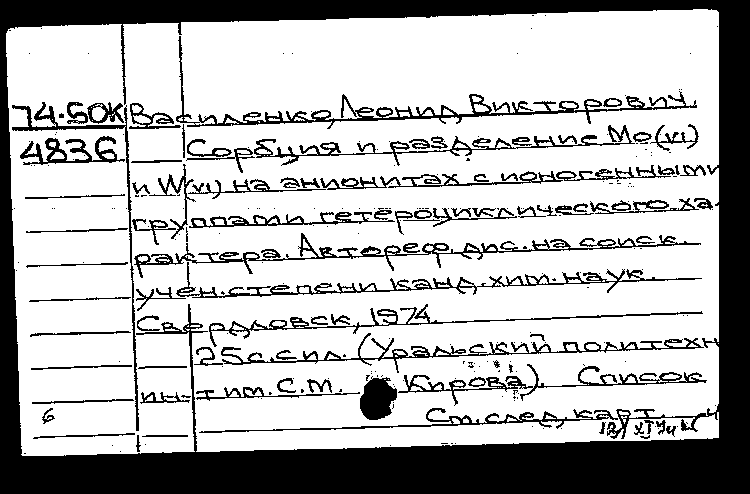 74-50К Василенко, Леонид Викторович.
4836 Сорбция и разделение Mo(VI)
и W(VI) на анионитах с ионогенными
группами гетероциклического ха-
рактера. Автореф. дис. на соиск.
учен. степени канд. хим. наук.
Свердловск, 1974.
25 с. с ил. (Уральский политехн.
ин-т им. С.М. Кирова). Список
6 См. след. карт.